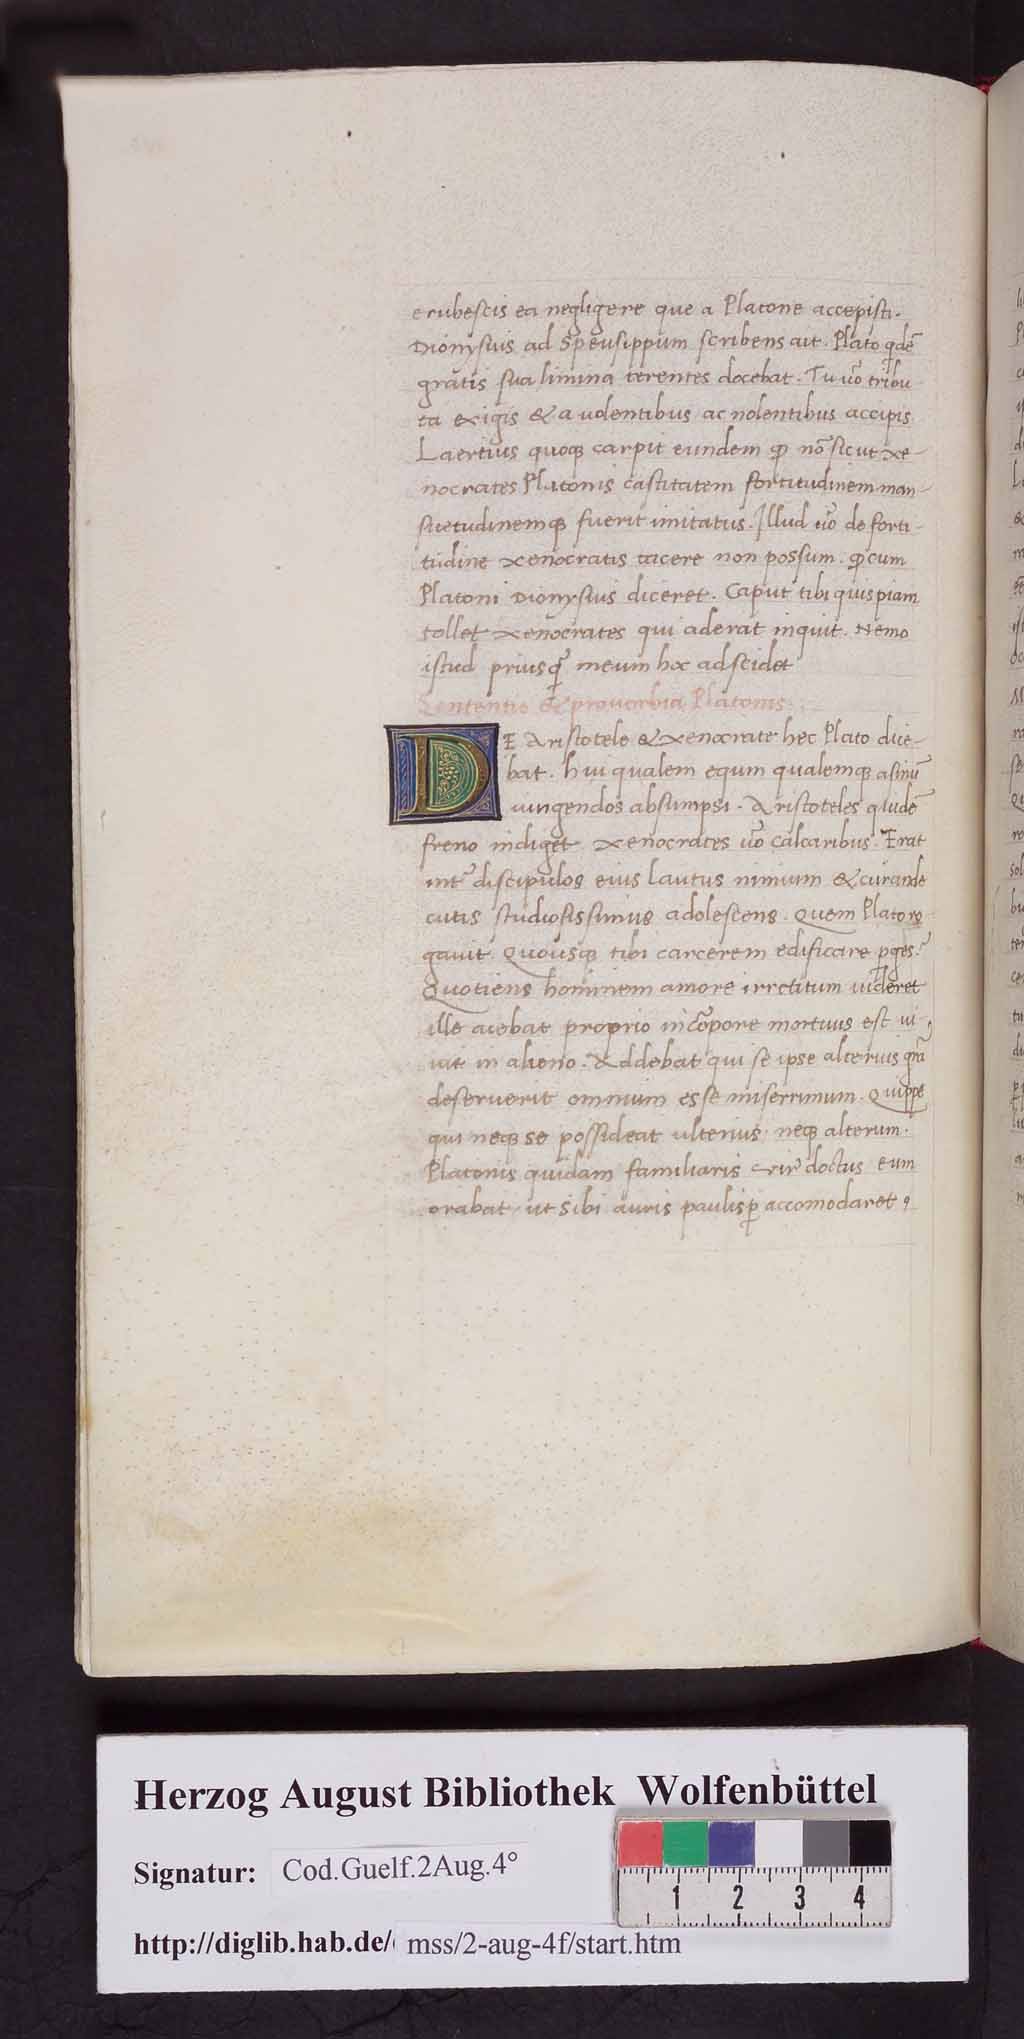 erubescis ea negligere que a Platone accepisti.
Dionysius ad Speusippum scribens ait. Plato qdē
gratis sua limina terentes docebat. Tu uō tribu
ta exigis & a uolentibus ac nolentibus accipis.
Laertius quoqꝫ carpit eundem ꝙ nō sicut xe-
nocrates Platonis castitatem fortitudinem man-
suetudinemqꝫ fuerit imitatus. Illud uō de forti-
tudine xenocratis tacere non possum. ꝙ cum
Platoni Dionysius diceret. Caput tibi quispiam
tollet xenocrates qui aderat inquit. Nemo
istud priusq̄ meum hoc adscidet
Sententie & prouerbia Platonis.
DE Aristotele & xenocrate hec Plato dice-
bat. hui qualem equm qualemqꝫ asinū
iungendos absumpsi. Aristoteles quidē
freno indiget xenocrates uō calcaribus. Erat
int̄ discipulos eius lautus nimium & curande
cutis studiosissimus adolescens. Quem Plato ro
gauit. Quousqꝫ tibi carcerem edificare ꝑges?
Quotiens hominem amore irretitum uideret
ille aiebat proprio in cōpore mortuus est ui-
uit in alieno. Addebat qui se ipse alterius grā
deseruerit omnium esse miserrimum. Quippe
qui neqꝫ se possideat ulterius neqꝫ alterum.
Platonis quidam familiaris uir doctus eum
orabat ut sibi auris paulisꝑ accomodaret
Herzog August Bibliothek Wolfenbüttel
Signatur: Cod.Guelf.2Aug.4°
1 2 3 4
http://diglib.hab.de/ mss/2-aug-4f/start.htm